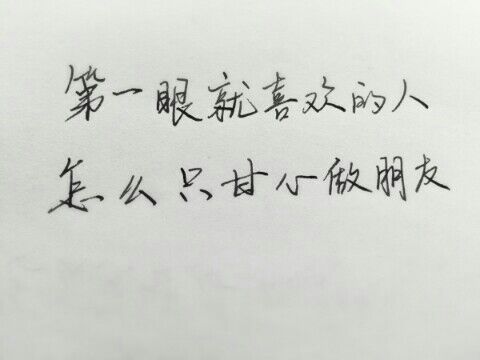 第一眼就喜欢的人
怎么只甘心做朋友